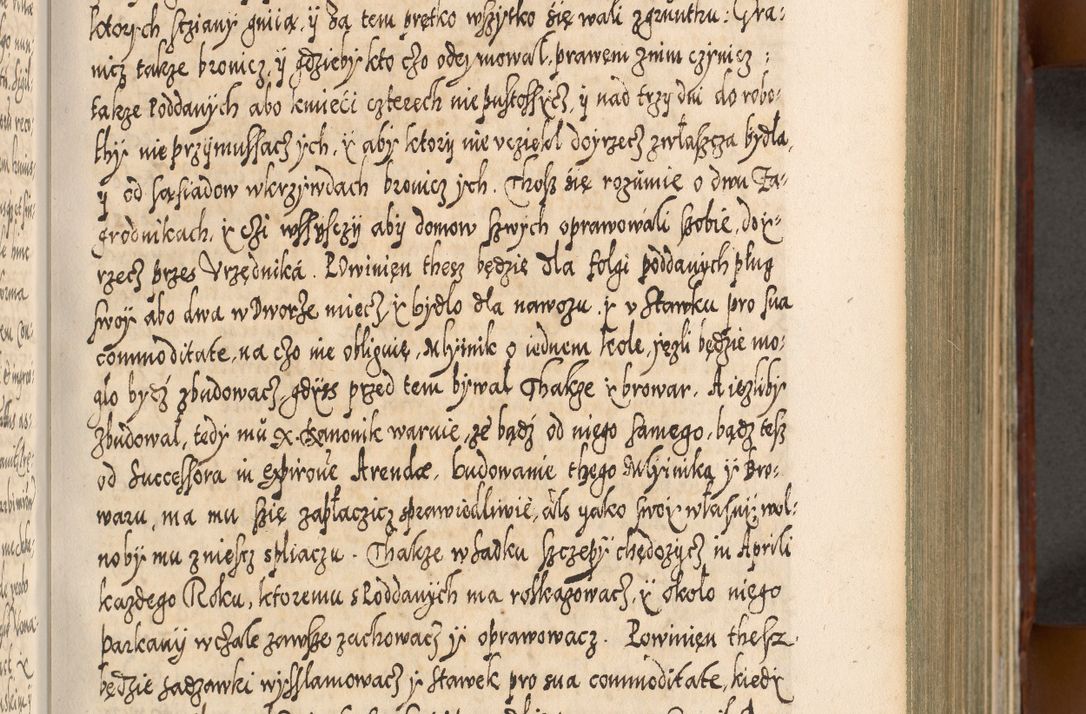 ktorych scziany gniią, ÿ za tem prętko wszytko się wali zgruntu: Gra:
nicz takze bronicz, ÿ gdzieby kto czo odeymował, prawem znim czynicz:
takze Poddanych abo kmieci czterech nie pustossycz, ÿ nad trzy dni do robo:
thy nie przymussacz ych, ẏ aby ktory nie vciekł doyrzecz zwłaszcza bydła,
ÿ od sąsiadow w krzywdach bronicz ych. Thosz się rozumie o dwu Za:
grodnikach, ẏ czi wssysczy aby domow swych oprawowali szobie, doy:
rzecz przes Vrzędniká. Powinien thesz będzie dla folgi poddanych pług
swoy abo dwa w Dworze miecz ẏ bydło dla nawozu, ẏ v Stawku pro sua
commoditate, na czo nie obliguię, Młynik o iednem kole, yęzli będzie mo:
gło bycz zbudowacz, gdysz przed tem bywał Thakze ẏ browar. A iezliby
zbudował, tedy mu X. Kanonik waruie, ze bądz od niego samego, bądz tesz
od Successora in expiroue Arendæ, budowanie thego Młynika ẏ Bro:
waru, ma mu szię zapłaczicz sprawiedliwie, als yako swoy własny wol:
no by mu zniescz spliaczu. Thakze w Sadku szczepy chędozycz in Aprili
kazdego Roku, ktoremu s Poddanych ma roskazowacz, ẏ około niego
parkany wczale zawsze zachowacz ẏ oprawowacz. Powinien thesz
będzie sadzawki wysslamowacz ẏ Stawek pro sua commoditate, kiedy